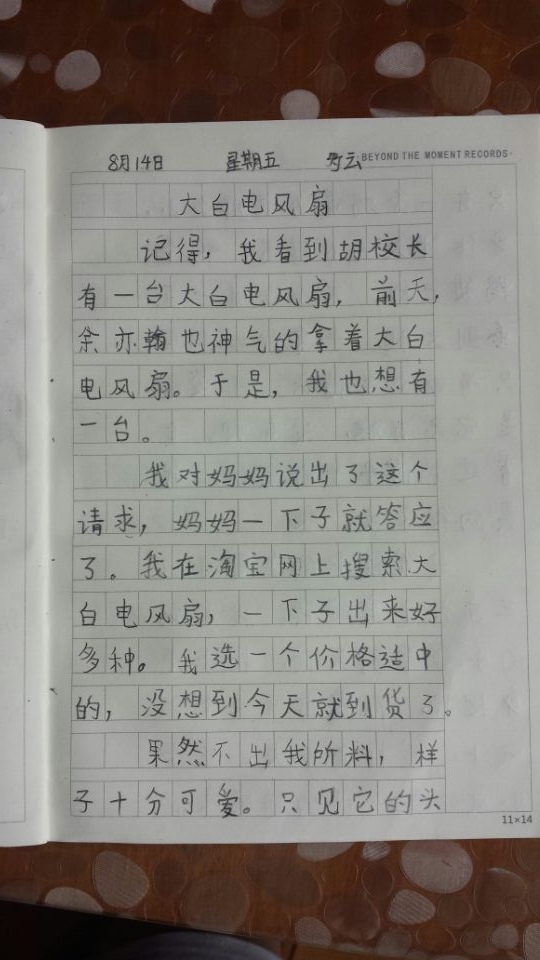 8月14日 星期五 多云 BEYOND THE MOMENT RECORDS
大白电风扇
记得，我看到胡校长
有一台大白电风扇，前天，
余亦翰也神气的拿着大白
电风扇。于是，我也想有
一台。
我对妈妈说出了这个
请求，妈妈一下子就答应
了。我在淘宝网上搜索大
白电风扇，一下子出来好
多种。我选一个价格适中
的，没想到今天就到货了。
果然不出我所料，样
子十分可爱。只见它的头
11×14